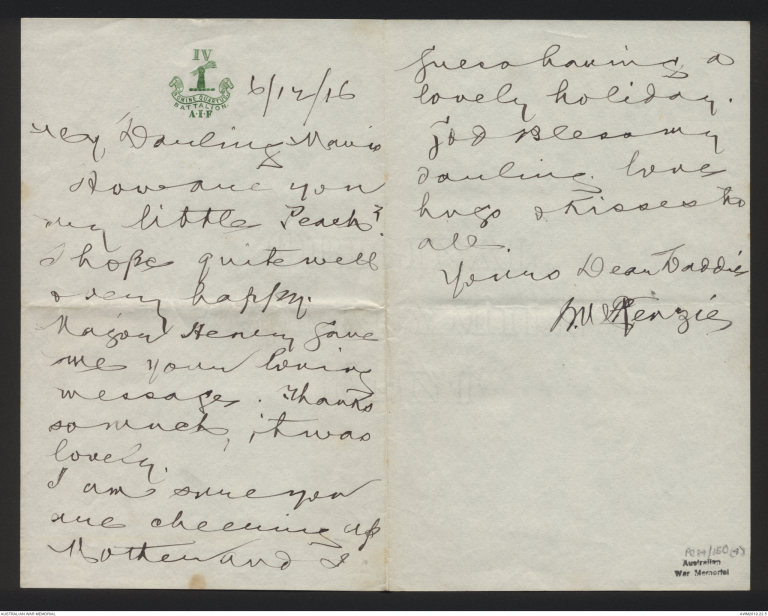 IV
NUNC QUAM
BATTALION.
A·I·F
6/12/16
My Darling Mavis
How are you
my little Peach?
I hope quite well
& very happy.
Major Henry gave
me your loving
message. Thanks
so much, it was
lovely.
I am sure you
are cheering up
Mother and I
guess having a
lovely holiday.
God Bless my
darling. love
hugs & Kisses to
all.
Yours Dear Daddie
W. McKenzie
PR84/150(4)
Australian
War Memorial
AUSTRALIAN WAR MEMORIAL
AWM2019.22.5